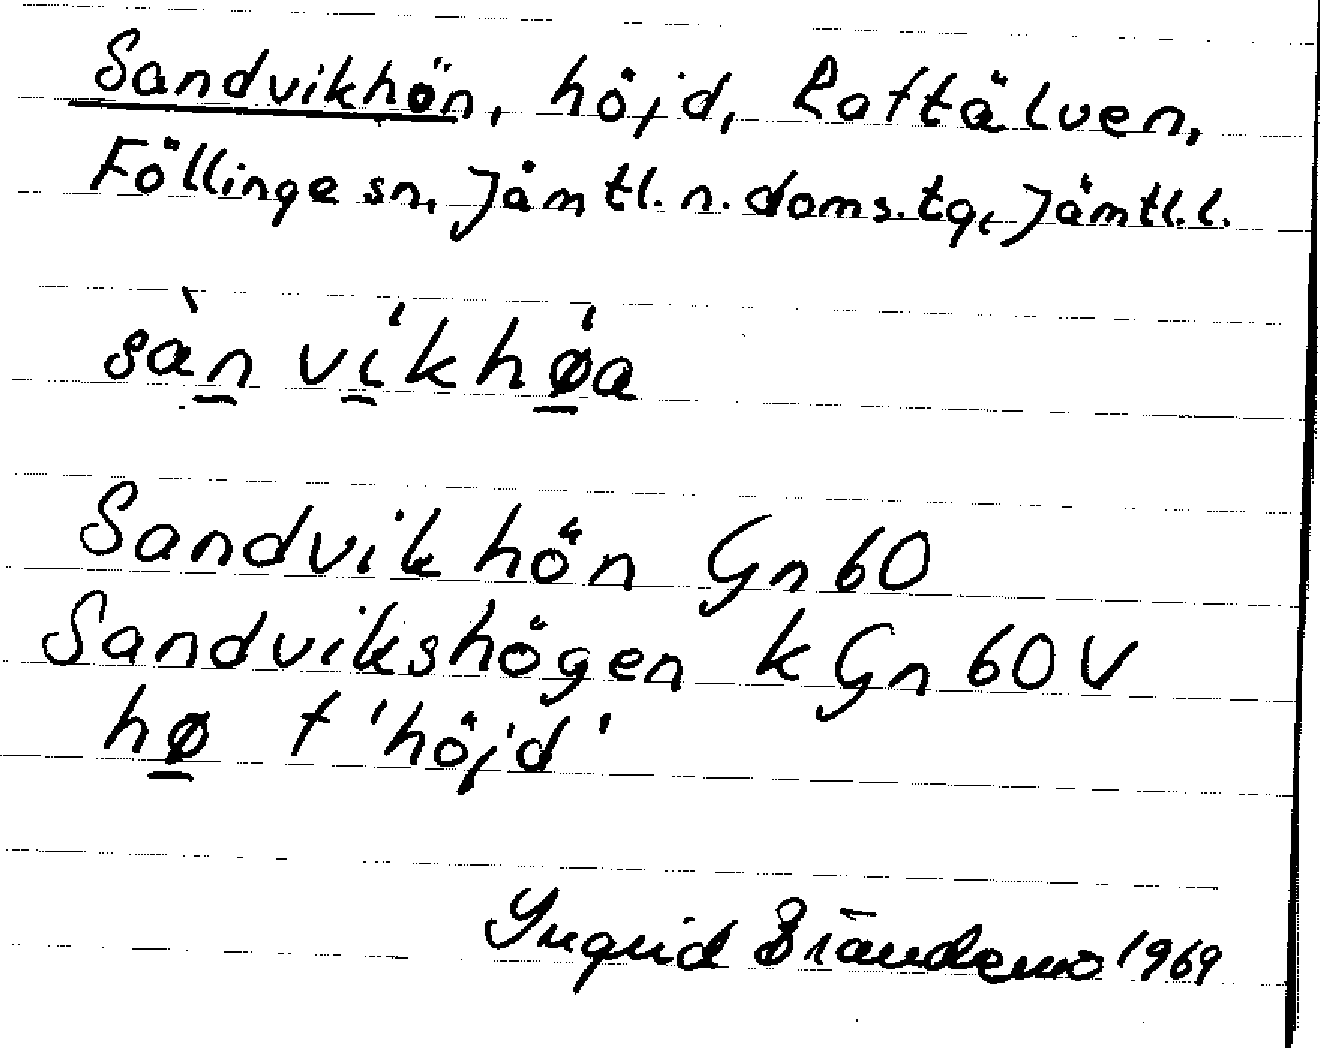 Sandvikhön, höjd, Raftälven,
Föllinge sn, Jämtl. n. doms. tg, Jämtl. l.
sàn víkhøa
Sandvikhön Gn 60
Sandvikshögen k Gn 60 V
hø f 'höjd'
Yngrid Brändemo 1969